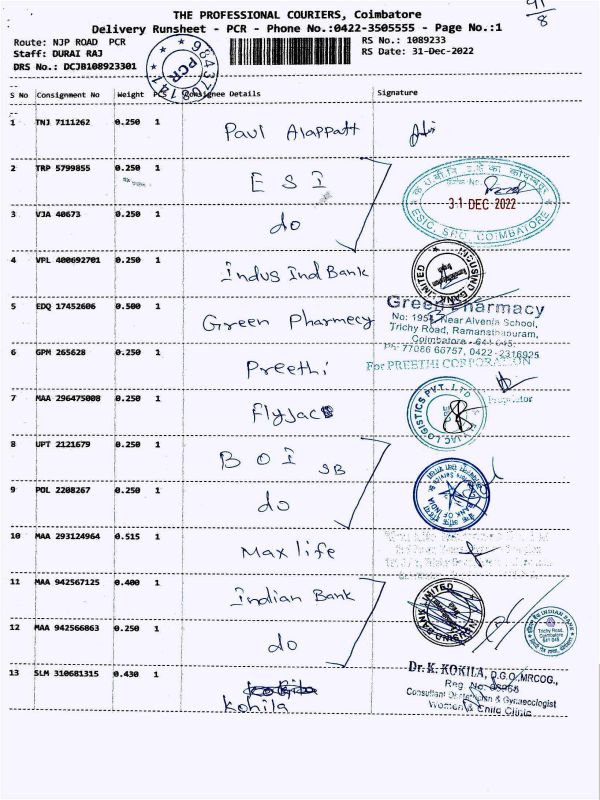 41/8
THE PROFESSIONAL COURIERS, Coimbatore
Delivery Runsheet - PCR - Phone No.:0422-3505555 - Page No.:1
Route: NJP ROAD PCR
RS No.: 1089233
Staff: DURAI RAJ
RS Date: 31-Dec-2022
DRS No.: DCJB108923301
PCR
S No Consignment No Weight PCS Consignee Details Signature
1 TNJ 7111262 0.250 1 Paul Alappatt
2 TRP 5799855 0.250 1 E S I
3 VJA 40673 0.250 1 do
31 DEC 2022
ESIC, SRO, COIMBATORE
4 VPL 400692701 0.250 1 Indus Ind Bank
INDUSIND BANK LIMITED
5 EDQ 17452606 0.500 1 Green Pharmecy
Green Pharmacy
No: 195, Near Alvenia School,
Trichy Road, Ramanathapuram,
Coimbatore - 641 045.
Ph: 77086 66757, 0422-2316925
6 GPM 265628 0.250 1 Preethi
For PREETHI CORPORATION
Proprietor
7 MAA 296475008 0.250 1 Flyjac
FLYJAC LOGISTICS PVT. LTD
8 UPT 2121679 0.250 1 B O I SB
9 POL 2208267 0.250 1 do
BANK OF INDIA
10 MAA 293124964 0.515 1 Max life
11 MAA 942567125 0.400 1 Indian Bank
INDUSIND BANK LIMITED
INDIAN BANK
Trichy Road,
Coimbatore
641 045
12 MAA 942566863 0.250 1 do
13 SLM 310681315 0.430 1 Kohila
Dr. K. KOKILA, D.G.O.,MRCOG.,
Reg. No:
Consultant Obstetrician & Gynaecologist
Women & Child Clinic